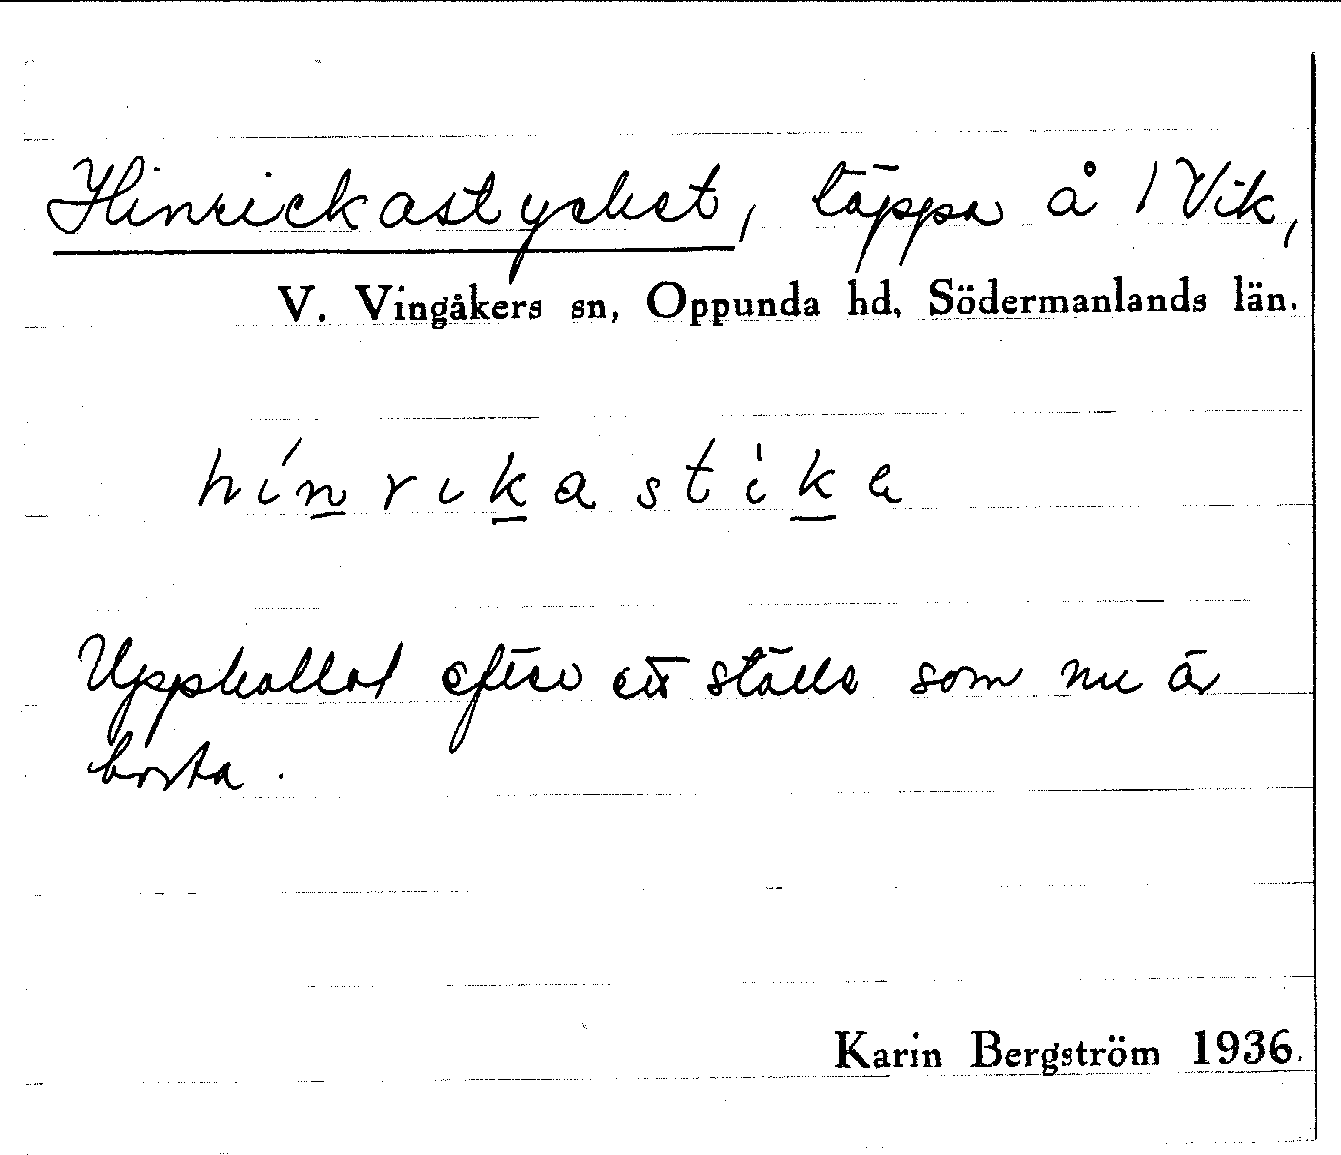 Hinrickastycket, täppa å 1 Vik,
V. Vingåkers sn, Oppunda hd, Södermanlands län.
hínrıkastı̍ka
Uppkallat efter ett ställe som nu är
borta.
Karin Bergström 1936.